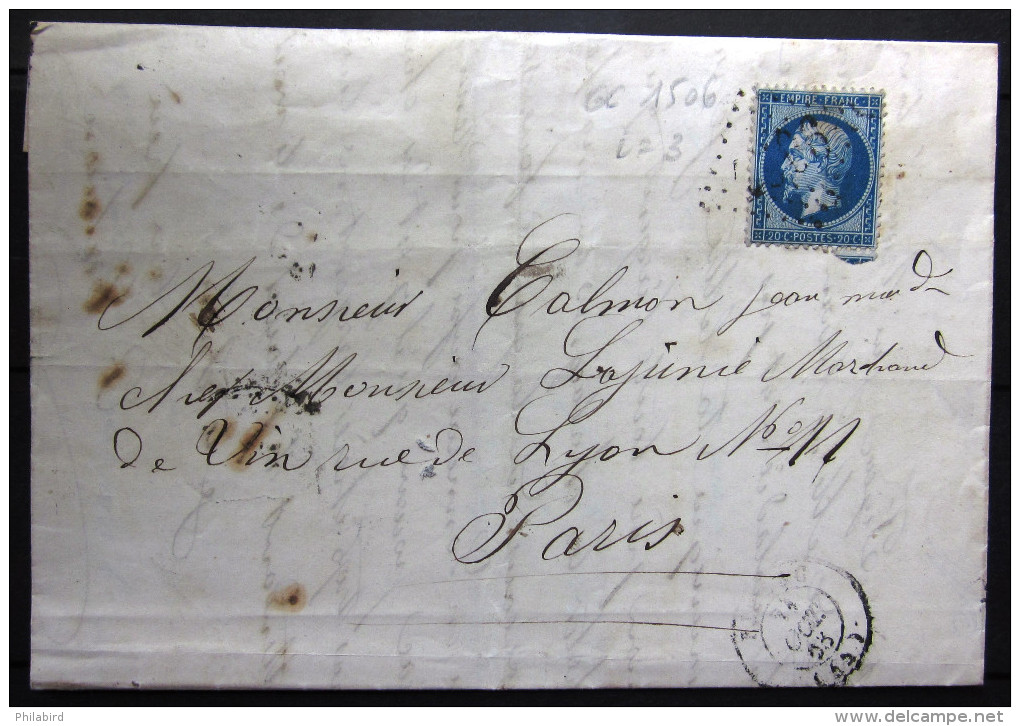 GC 1506
EMPIRE·FRANC·
20·C·POSTES·20·C·
Monsieur Talmon jean md
Monsieur Lajunie Marchand
de Vin rue de Lyon No 11
Paris
Philabird
delcampe.net